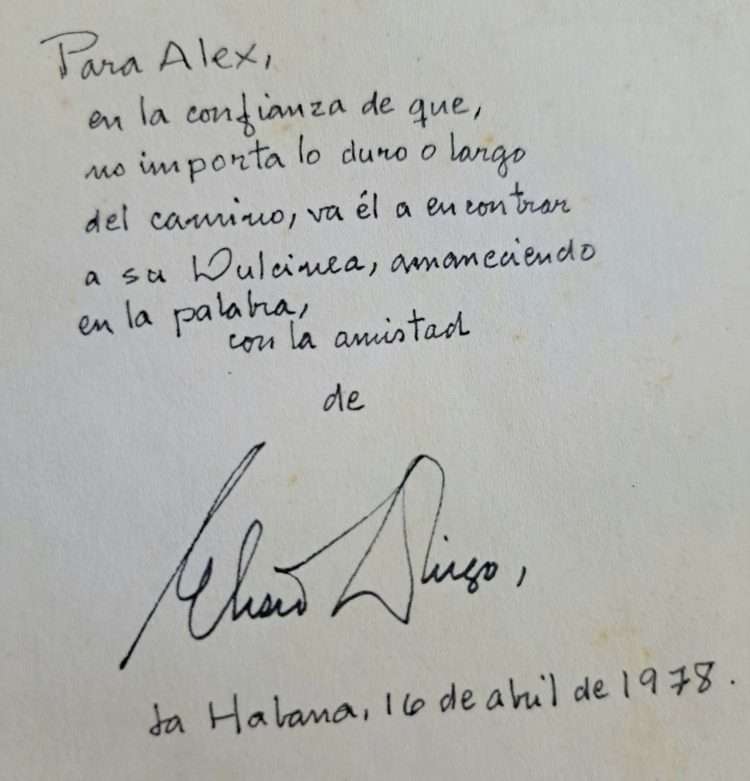 Para Alex,
en la confianza de que,
no importa lo duro o largo
del camino, va él a encontrar
a su Dulcinea, amaneciendo
en la palabra,
con la amistad
de
Eliseo Diego,
La Habana, 16 de abril de 1978.